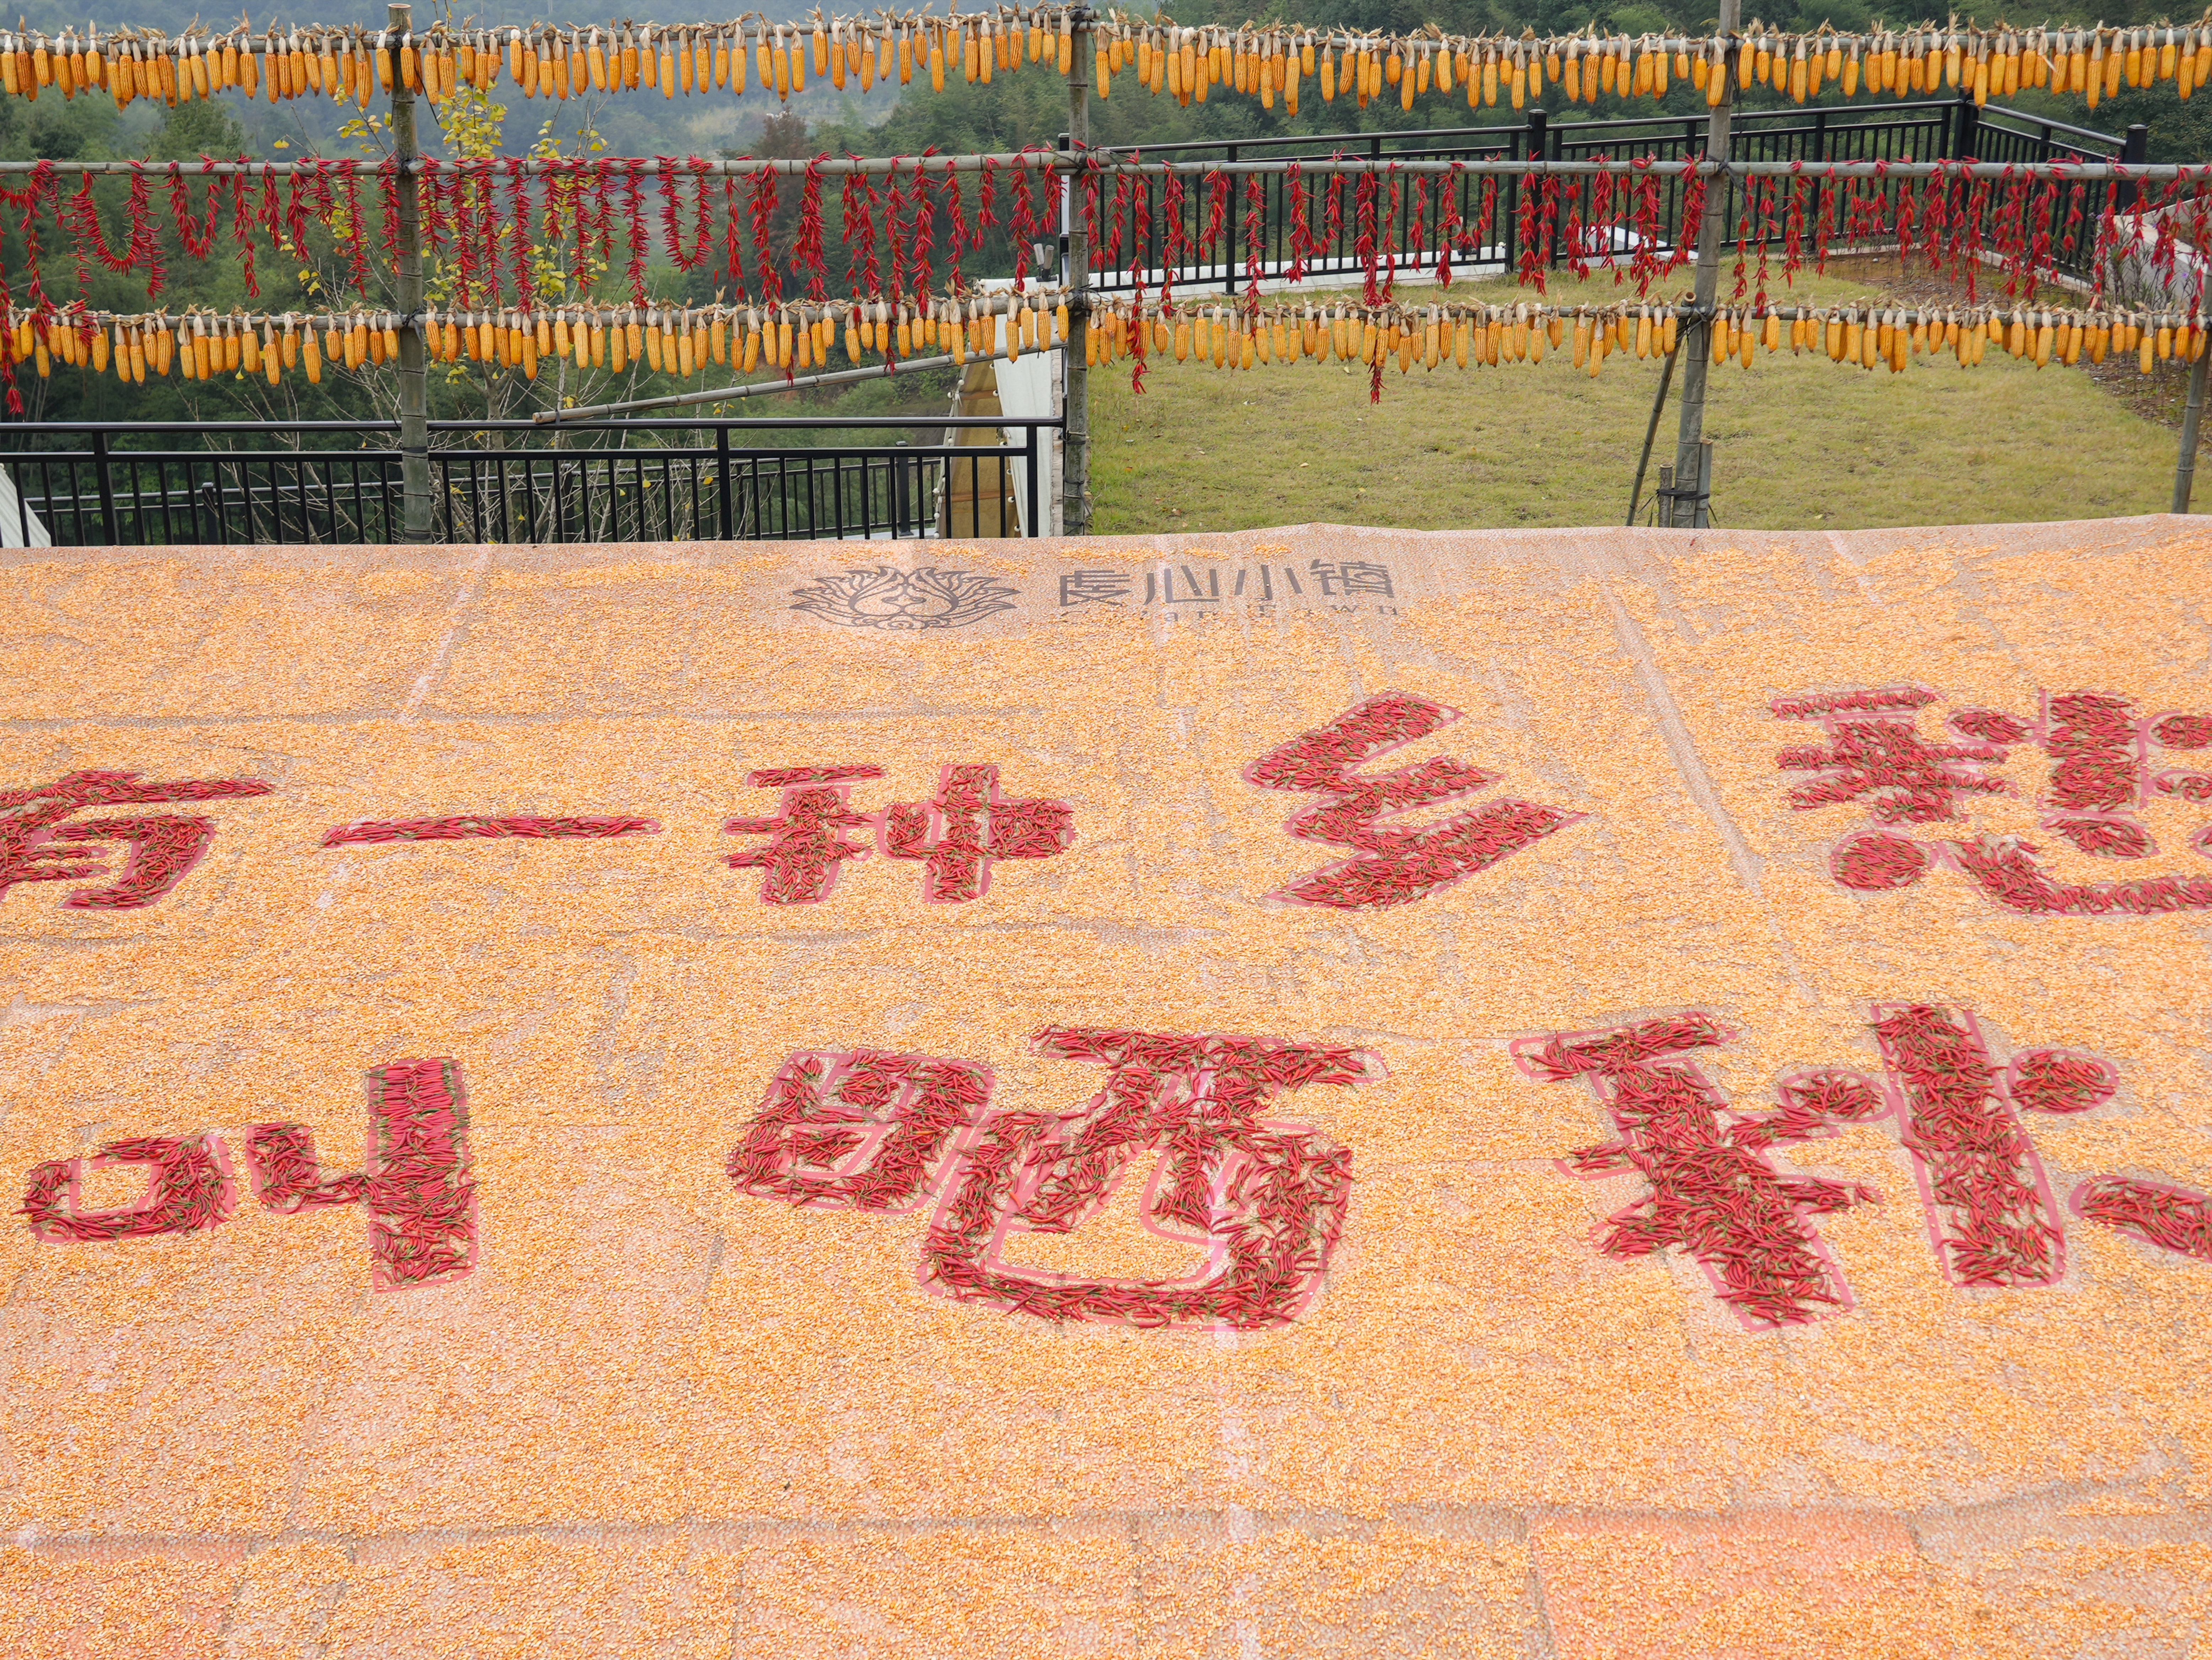 心小镇
有一种乡愁
叫晒秋